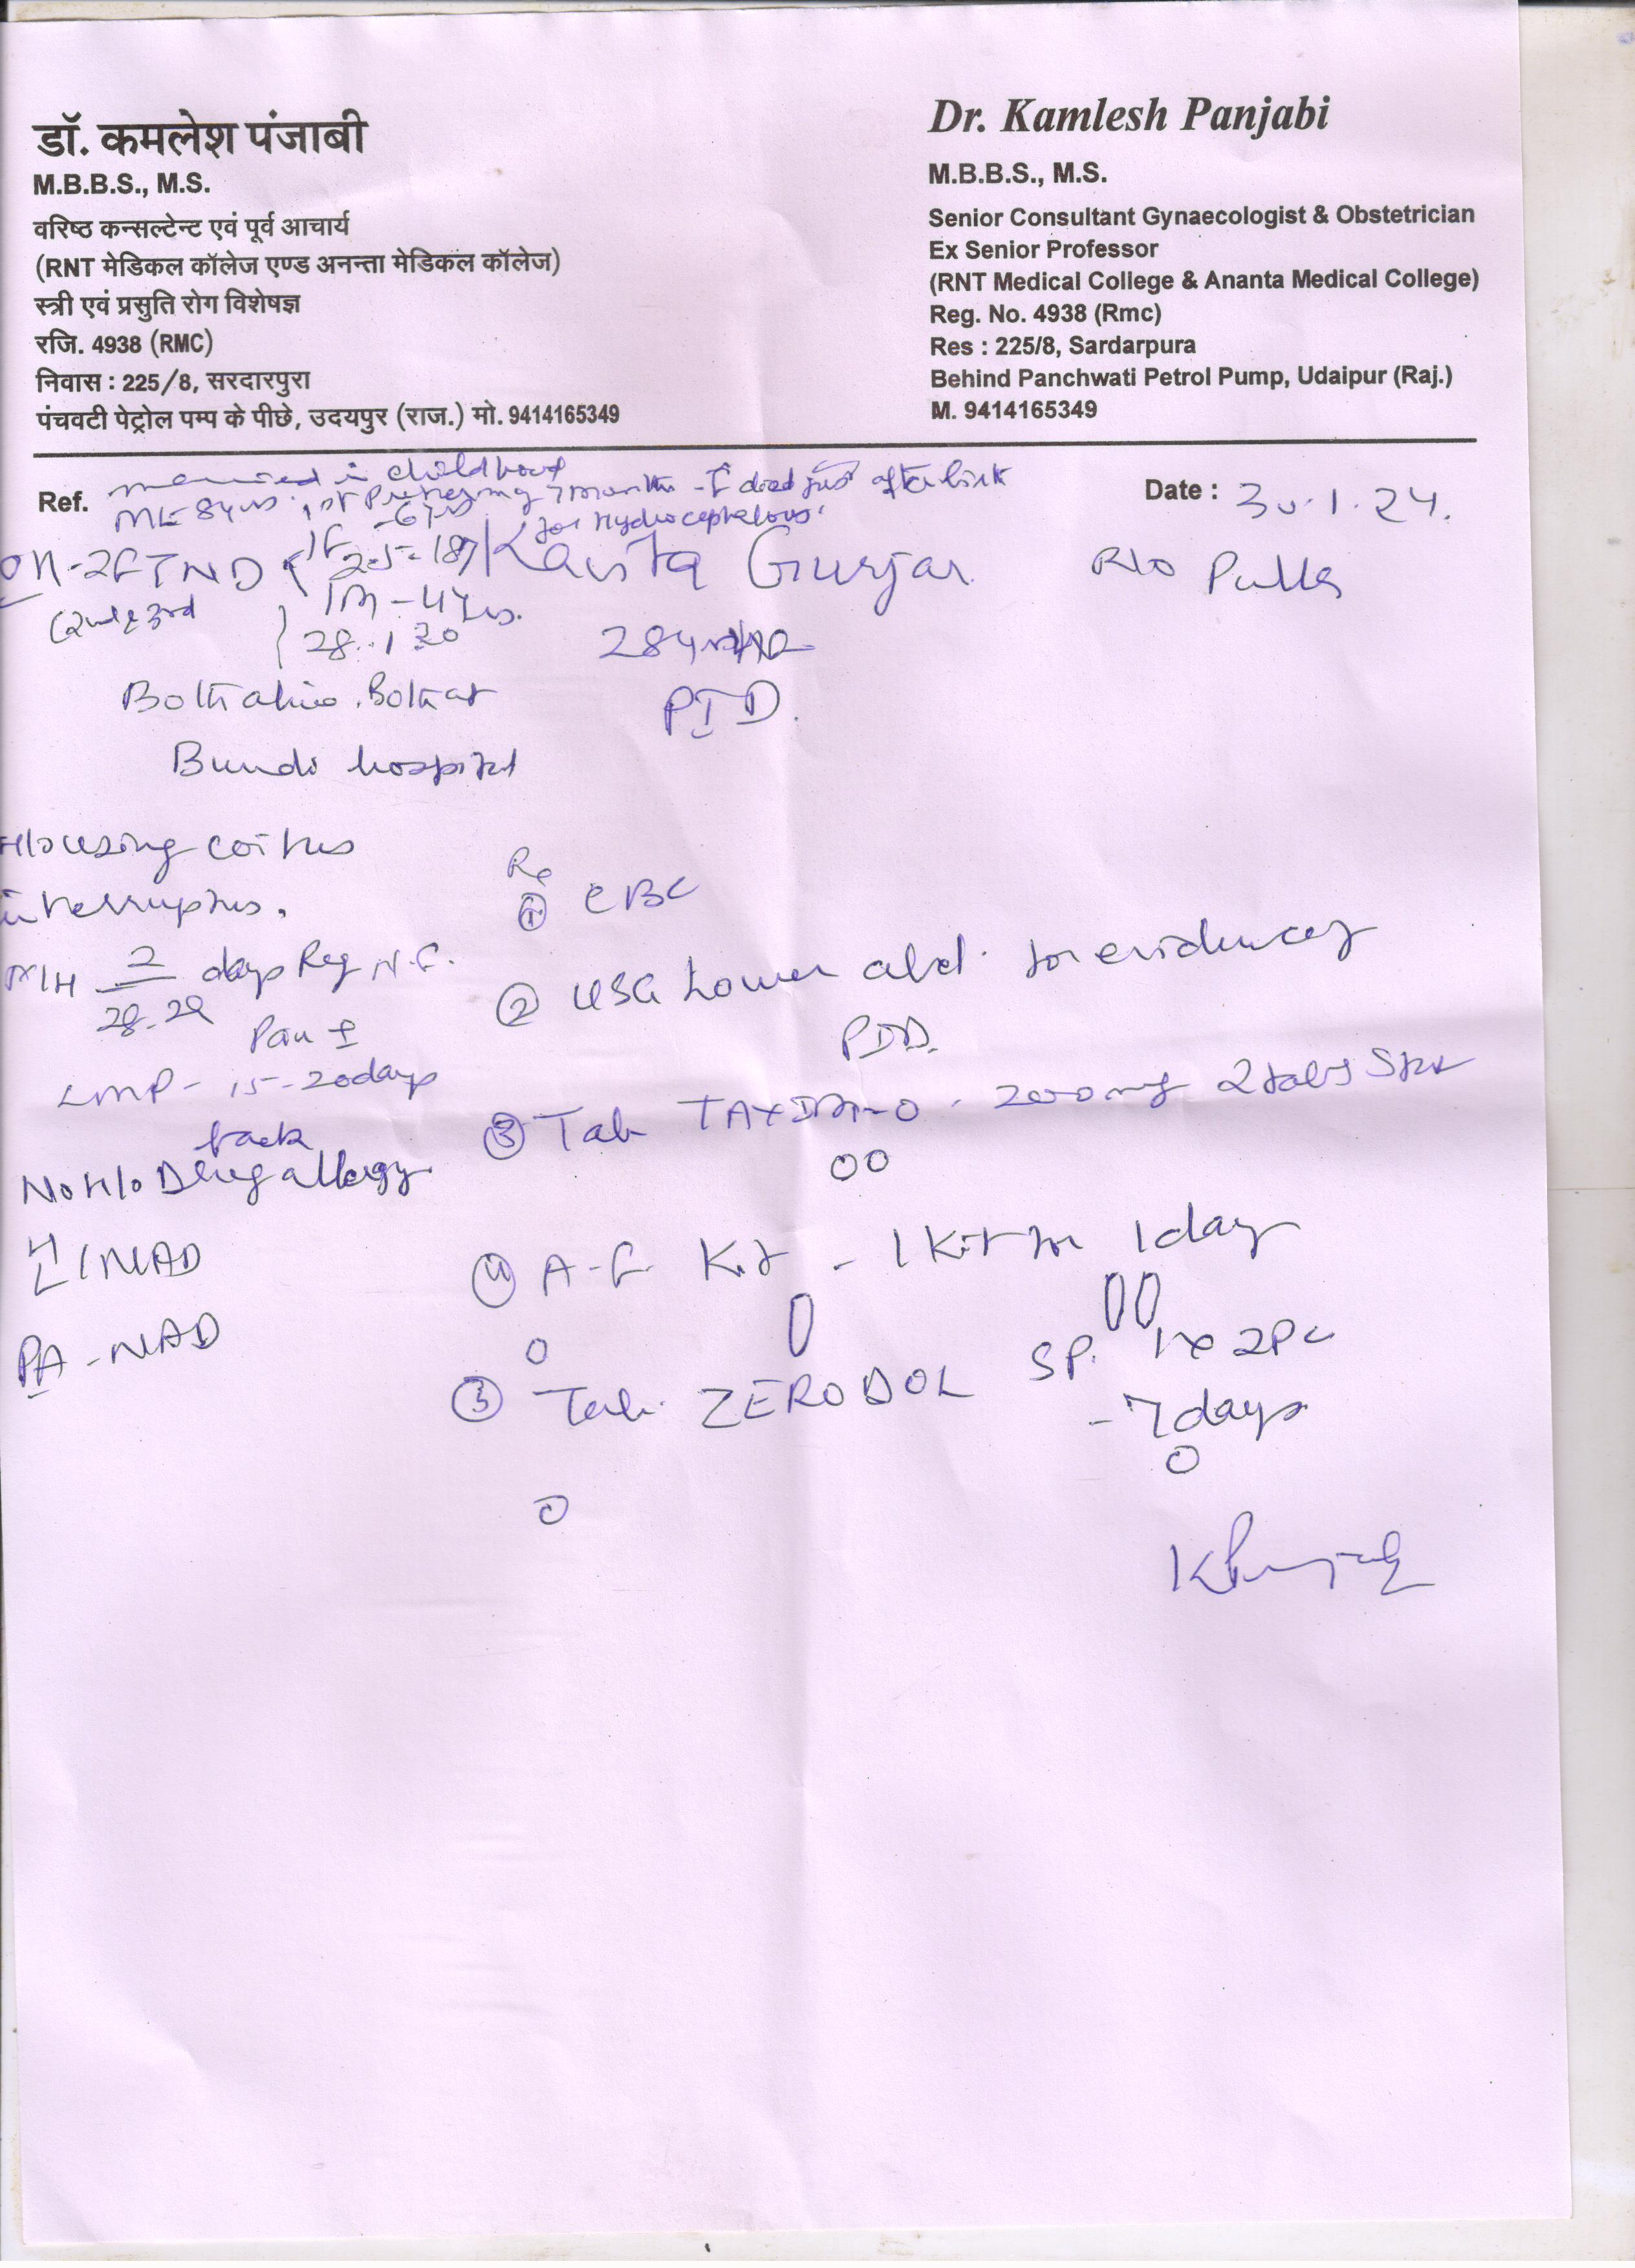 डॉ. कमलेश पंजाबी
M.B.B.S., M.S.
वरिष्ठ कन्सल्टेन्ट एवं पूर्व आचार्य
(RNT मेडिकल कॉलेज एण्ड अनन्ता मेडिकल कॉलेज)
स्त्री एवं प्रसुति रोग विशेषज्ञ
रजि. 4938 (RMC)
निवास : 225/8, सरदारपुरा
पंचवटी पेट्रोल पम्प के पीछे, उदयपुर (राज.) मो. 9414165349
Dr. Kamlesh Panjabi
M.B.B.S., M.S.
Senior Consultant Gynaecologist & Obstetrician
Ex Senior Professor
(RNT Medical College & Ananta Medical College)
Reg. No. 4938 (Rmc)
Res : 225/8, Sardarpura
Behind Panchwati Petrol Pump, Udaipur (Raj.)
M. 9414165349
Ref.
married in childhood
7 months - died just after birth
for Hydrocephalous.
Date : 30.1.24.
2FTND
Kavita Gurjar
R/o Pulla
(2nd & 3rd
1M - 4yrs.
28.1.20
PID.
Bundi hospital
H/o using coitus
interruptus.
M/H 2/28-29 days Reg N.F.
Pain ±
LMP - 15-20days
back
No H/o Drug allergy
H/L/NAD
PA - NAD
Rx
① CBC
② USG Lower abd. for evidence of
PID.
③ Tab TAXIM-O 200mg 2 tabs Stat
④ A-F Kit - 1 Kit for 1 day
⑤ Tab. ZERODOL SP. 1 x 2 PC
- 7 days